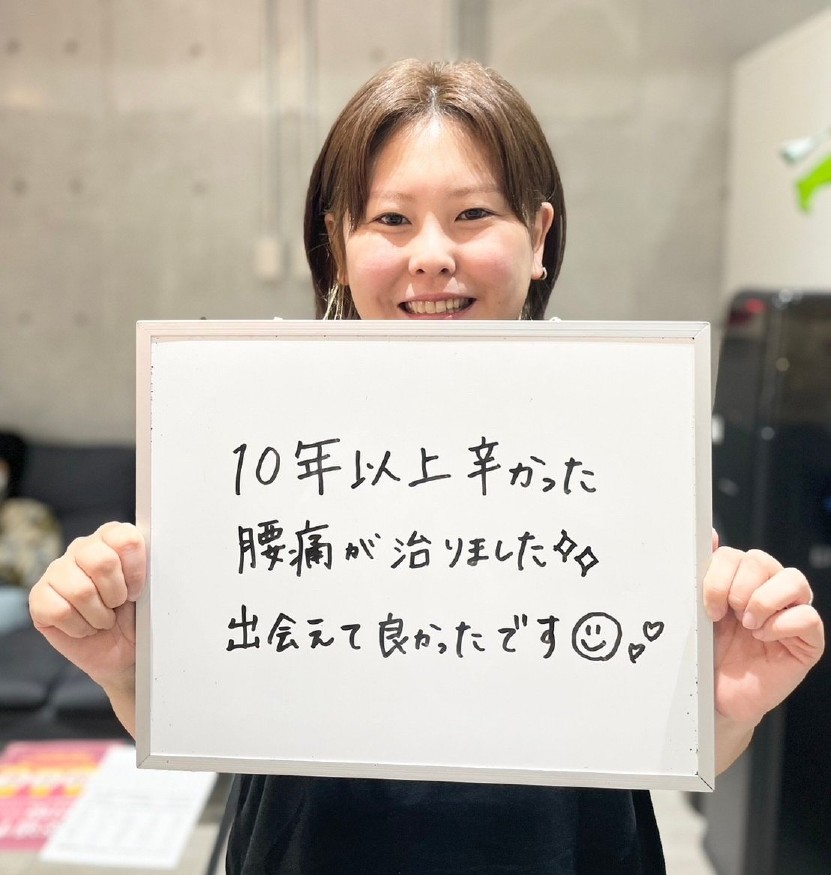 10年以上辛かった
腰痛が治りました✧✧
出会えて良かったです☺♡♡